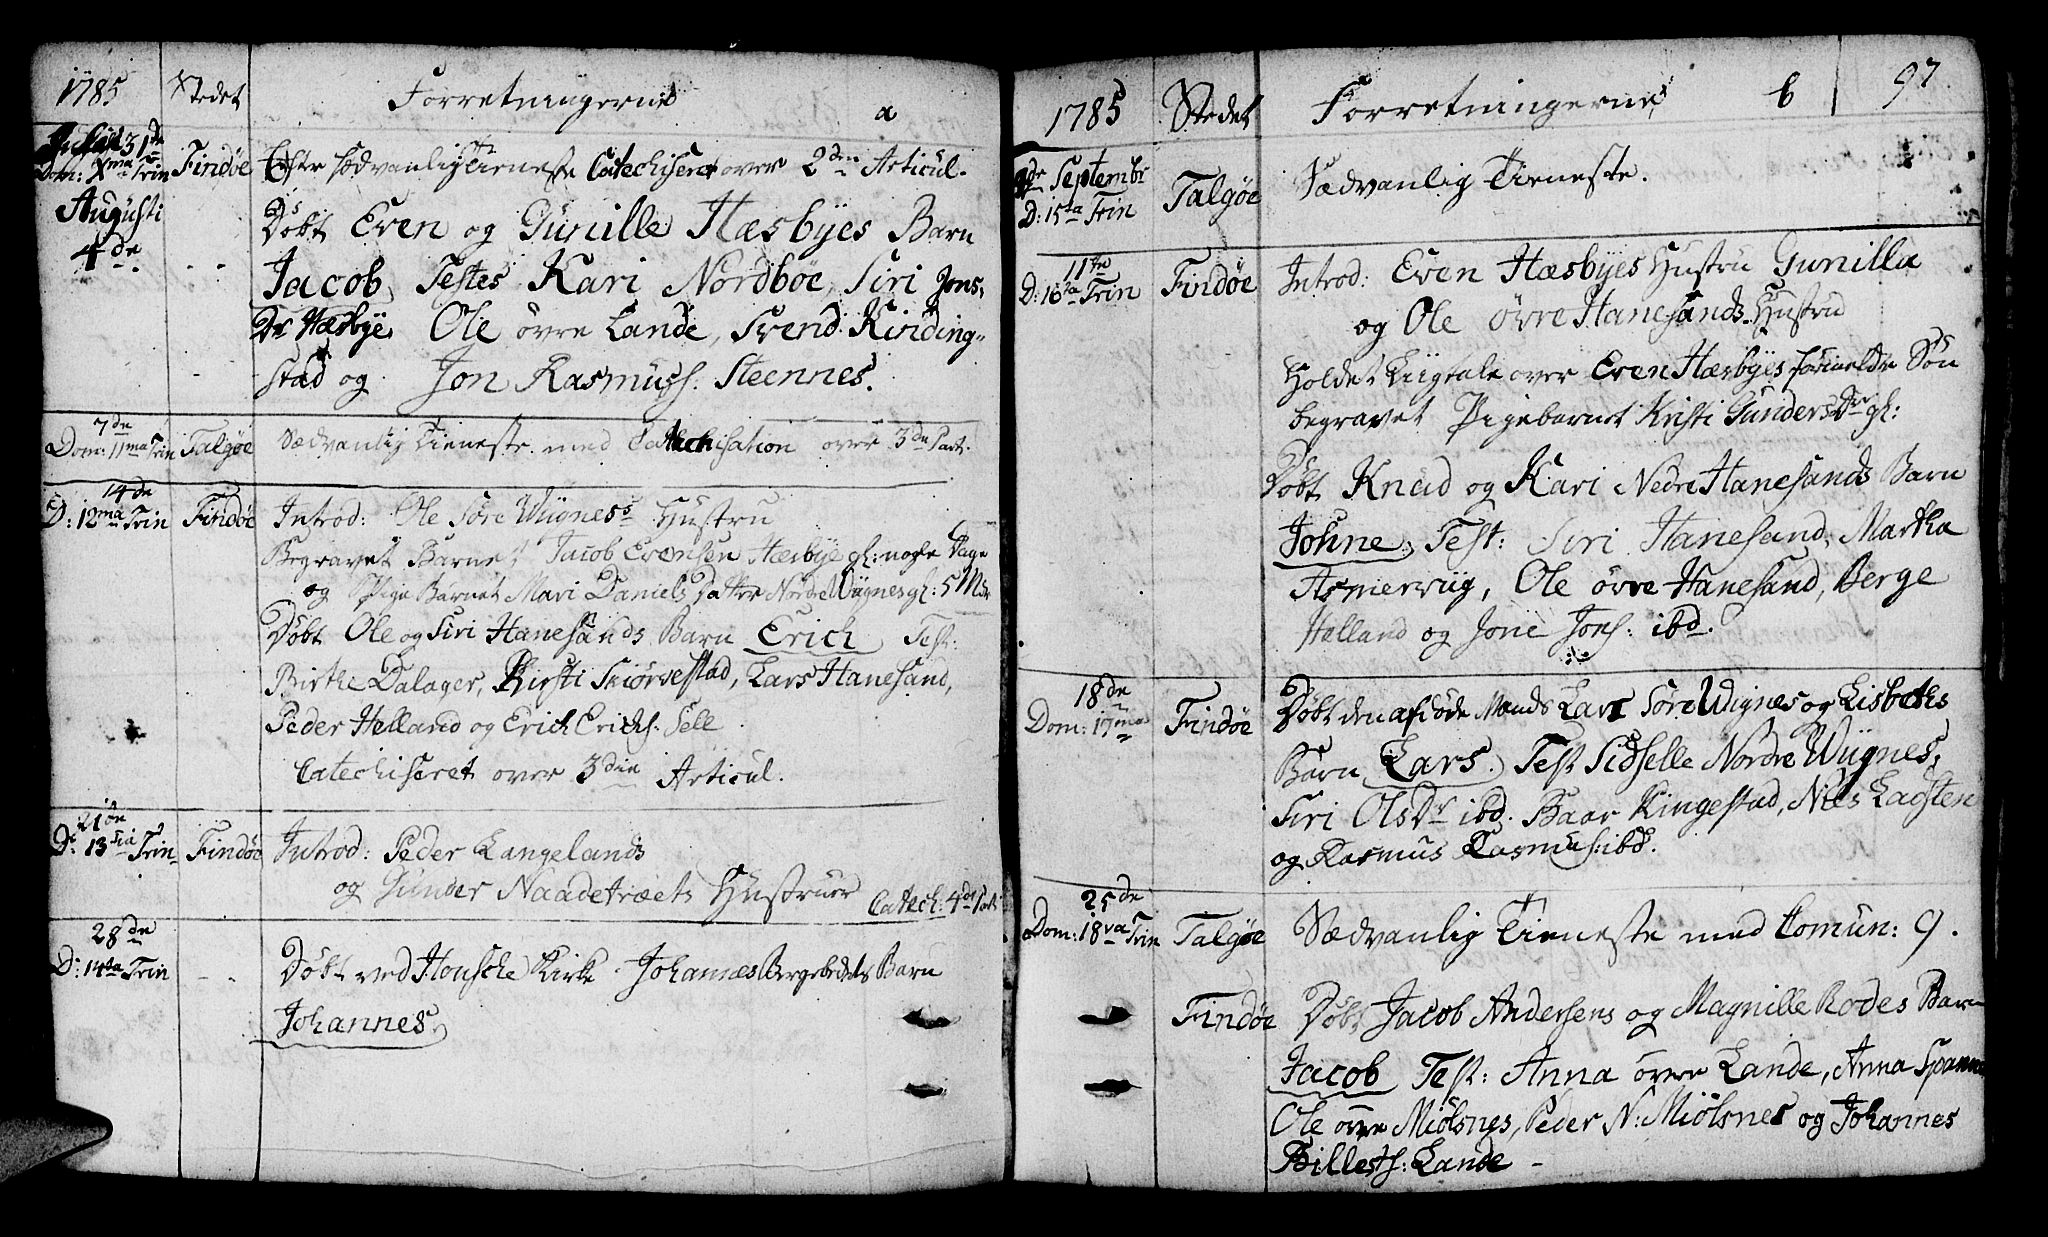 1785 Stedet Forretningerne a
Julii 31de
Dom: Xma Trin Findøe Efter sædvanlig Tieneste Catechiseret over 2den Articul.
Augusti
4de Døbt Even og Gunille Hæsbyes Barn
Jacob, Testes Kari Nordbøe, Siri Jons
Dr Hæsbye, Ole övre Lande, Svend Kinding-
stad og Jon Rasmuss. Steennes.
7de
Dom: 11ma Trin Talgøe Sædvanlig Tieneste med Catechisation over 3de Part.
14de
D: 12ma Trin Findøe Introd: Ole Söre Wiignes's Hustru
Begravet Barnet Jacob Evensen Hæsbye gl: nogle Dage
og Pige Barnet Mari Daniels Datter Nordre Wiignes gl: 5 Mdr
Døbt Ole og Siri Hanesands Barn Erich, Test:
Birthe Dalager, Kirsti Skiörvestad, Lars Hanesand,
Peder Helland og Erich Erichs. Selle
Catechiseret over 3die Articul.
21de
D: 13tia Trin Findøe Introd: Peder Langelands
og Gunder Naadetræets Hustruer Catech: 4de Part
28de
D: 14ta Trin Døbt ved Housche Kirke Johannes Bergebedets Barn
Johannes.
1785 Stedet Forretningerne b 97
4de Septembr
D: 15ta Trin Talgøe Sædvanlig Tieneste.
11te
D: 16ta Trin Findøe Introd: Even Hæsbyes Hustru Gunilla
og Ole övre Hanesands Hustru
Holdet Liigtale over Even Hæsbyes formeldte Søn
begravet Pigebarnet Kristi Gunders Dr gl:
Døbt Knud og Kari Nedre Hanesands Barn
Johne, Test: Siri Hanesand, Martha
Asmerviig, Ole övre Hanesand, Berge
Helland og Jone Jons: ibd.
18de
Dom: 17ma Findøe Døbt den afdøde Mands Lars Söre Wignes og Lisbeths
Barn Lars. Test Sidselle Nordre Wiignes,
Siri Ols Dr ibd. Baar Kingestad, Niels Ladsten
og Rasmus Rasmus: ibd.
25de
Dom: 18va Trin Talgøe Sædvanlig Tieneste med Comun: 9.
Findøe Døbt Jacob Andersens og Magnille Rodes Barn
Jacob Test: Anna övre Lande, Anna Spanne
Ole övre Miölsnes, Peder N: Miölsnes og Johannes
Billests: Lande -